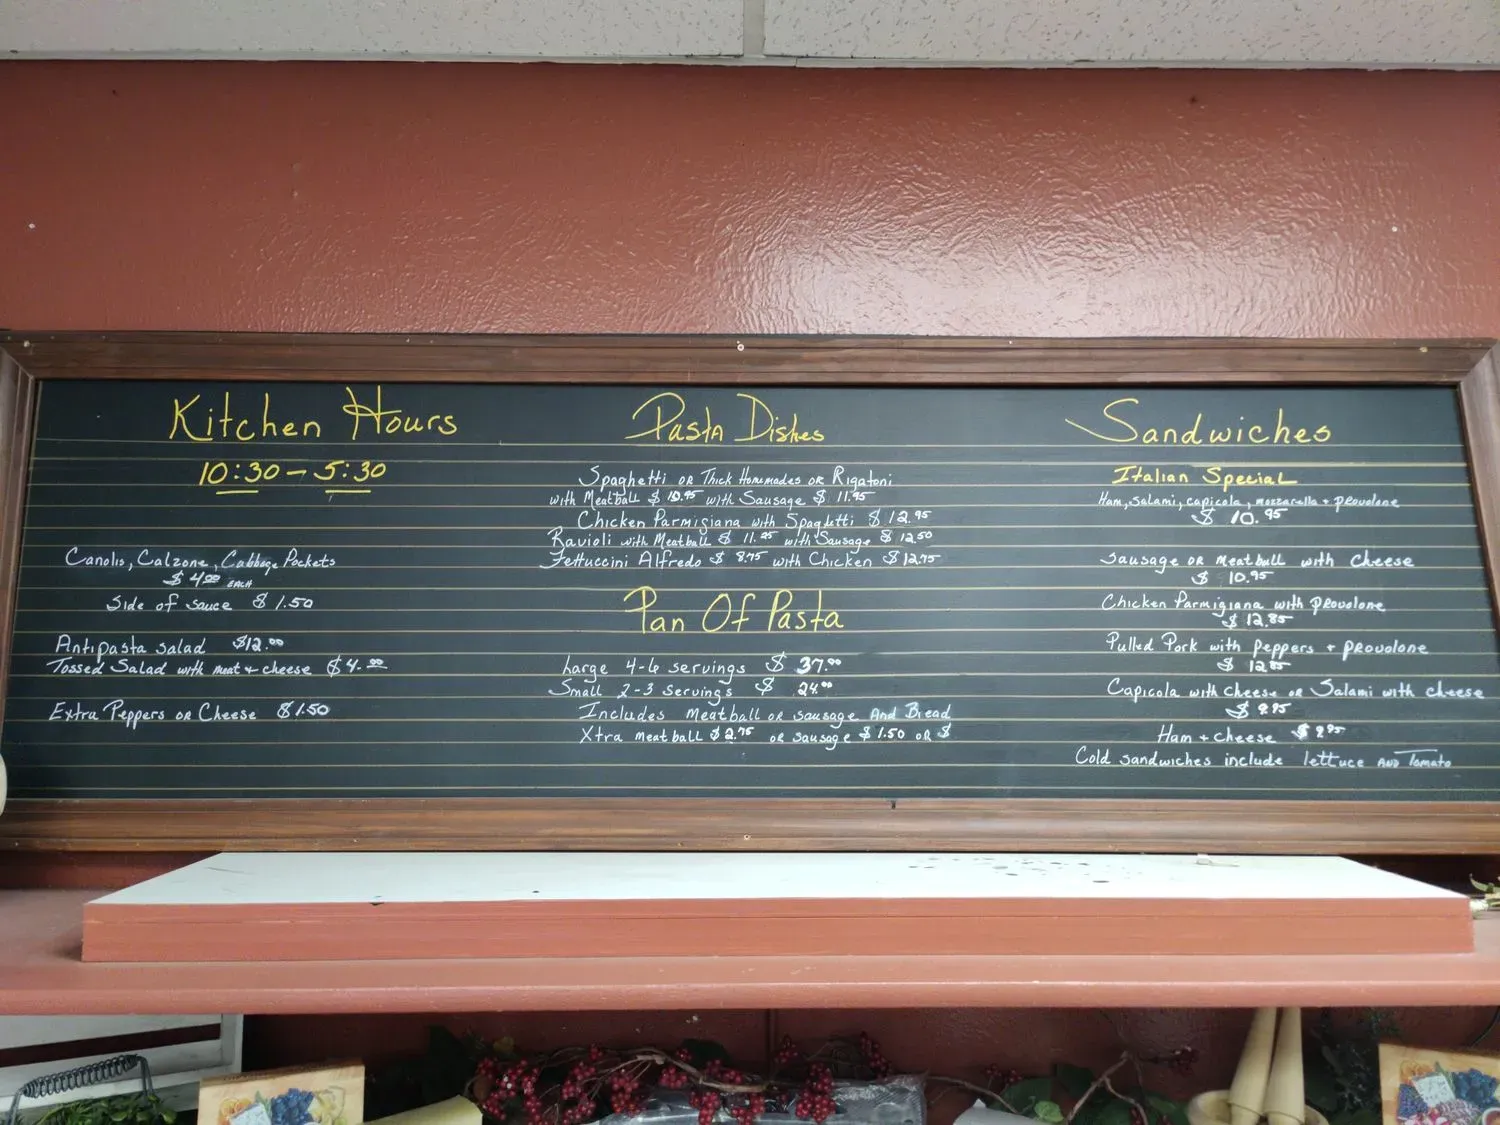 Kitchen Hours
10:30 - 5:30
Canolis, Calzone, Cabbage Pockets
$4.00 EACH
Side of sauce $1.50
Antipasta salad $12.00
Tossed Salad with meat + cheese $4.00
Extra Peppers or Cheese $1.50
Pasta Dishes
Spaghetti or Thick Homemades or Rigatoni
with Meatball $10.95 with Sausage $11.95
Chicken Parmigiana with Spaghetti $12.95
Ravioli with Meatball $11.25 with Sausage $12.50
Fettuccini Alfredo $8.75 with Chicken $12.75
Pan Of Pasta
Large 4-6 servings $37.00
Small 2-3 servings $24.00
Includes Meatball or sausage And Bread
Xtra meatball $2.75 or sausage $1.50 or $
Sandwiches
Italian Special
Ham, salami, capicola, mozzarella + provolone
$10.95
Sausage or meatball with cheese
$10.95
Chicken Parmigiana with provolone
$12.85
Pulled Pork with peppers + provolone
$12.85
Capicola with cheese or Salami with cheese
$9.95
Ham + cheese $9.95
Cold sandwiches include lettuce AND Tomato